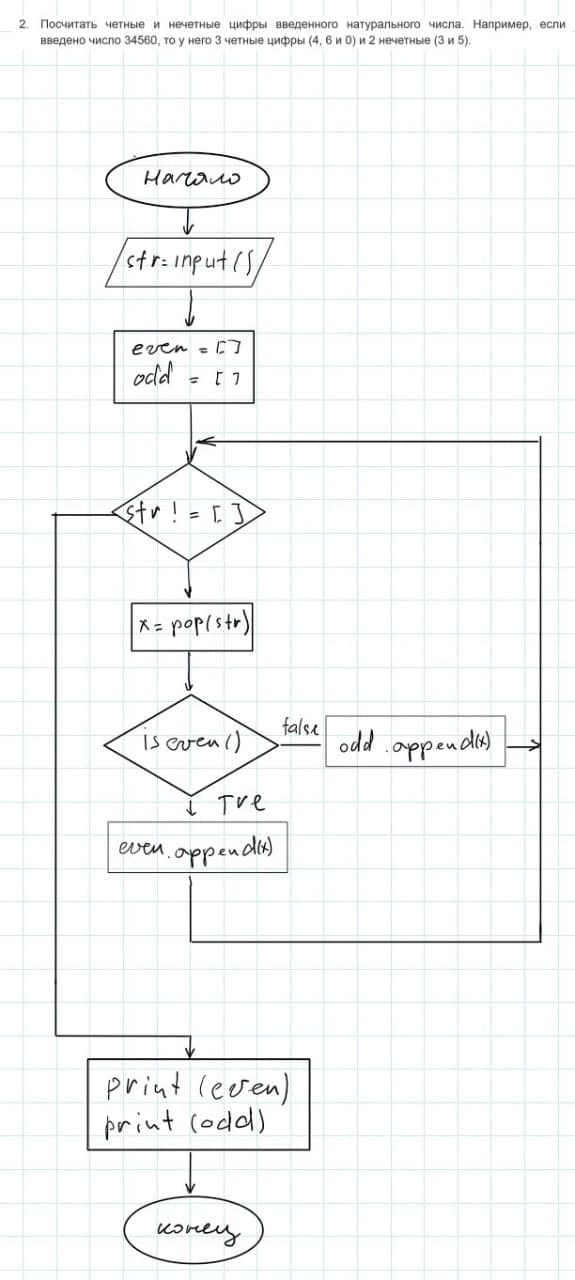 2. Посчитать четные и нечетные цифры введенного натурального числа. Например, если
введено число 34560, то у него 3 четные цифры (4, 6 и 0) и 2 нечетные (3 и 5).
Начало
str=input()
even = []
odd = []
str != []
x= pop(str)
is even()
false
odd.append(x)
Tre
even.append(x)
print (even)
print (odd)
конец